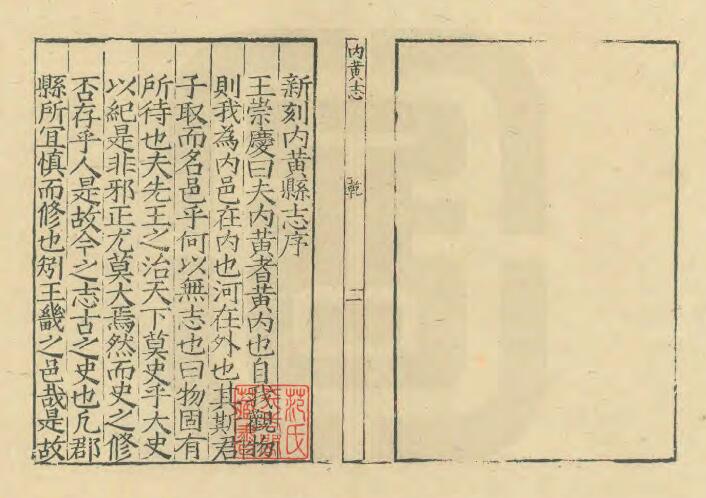 新刻内黄縣志序
王崇慶曰夫内黄者黄内也自我觀物
則我為内邑在内也河在外也其斯君
子取而名邑乎何以無志也曰物固有
所待也夫先王之治天下莫史乎大史
以紀是非邪正尤莫大焉然而史之修
否存乎人是故今之志古之史也凡郡
縣所宜慎而修也矧王畿之邑哉是故
内黄志
乾
二
范氏